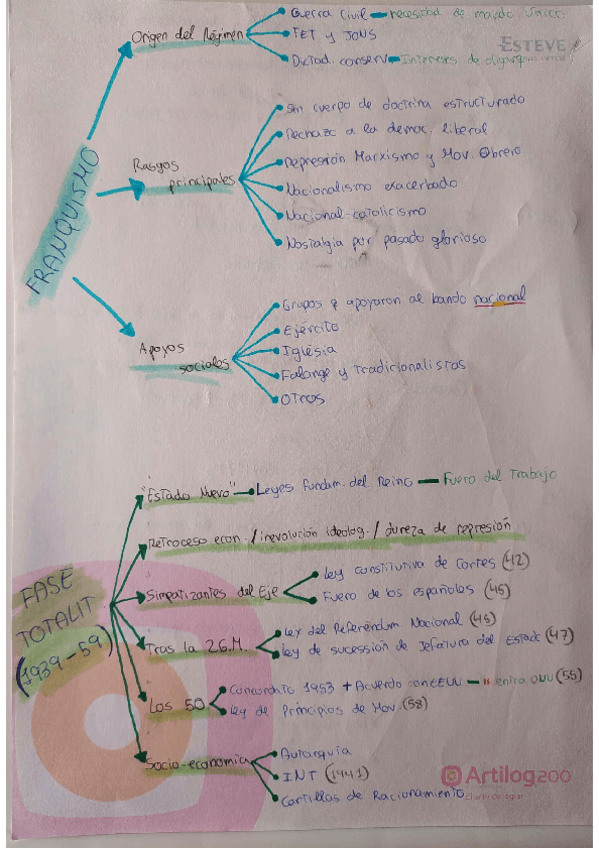 Guerra Civil — necesidad de mando único
Origen del Régimen
FET y JONS
ESTEVE
Dictad. conserv — Intereses de oligarq
Sin cuerpo de doctrina estructurado
Rechazo a la democ. liberal
Rasgos principales
Represión Marxismo y Mov. Obrero
FRANQUISMO
Nacionalismo exacerbado
Nacional-catolicismo
Nostalgia por pasado glorioso
Grupos q apoyaron al bando nacional
Ejército
Apoyos sociales
Iglesia
Falange y Tradicionalistas
Otros
"Estado Nuevo" — Leyes fundam. del Reino — Fuero del Trabajo
Retroceso econ. / involución ideolog. / dureza de represión
Ley constitutiva de Cortes (42)
Simpatizantes del Eje
Fuero de los españoles (45)
FASE TOTALIT (1939-59)
Ley del Referéndum Nacional (45)
Tras la 2G.M.
Ley de sucesión de Jefatura del Estado (47)
Concordato 1953 + Acuerdo con EEUU — entra ONU (55)
Los 50
Ley de Principios de Mov. (58)
Autarquía
Socio-economía
INT (1941)
Artilog200
Cartillas de Racionamiento